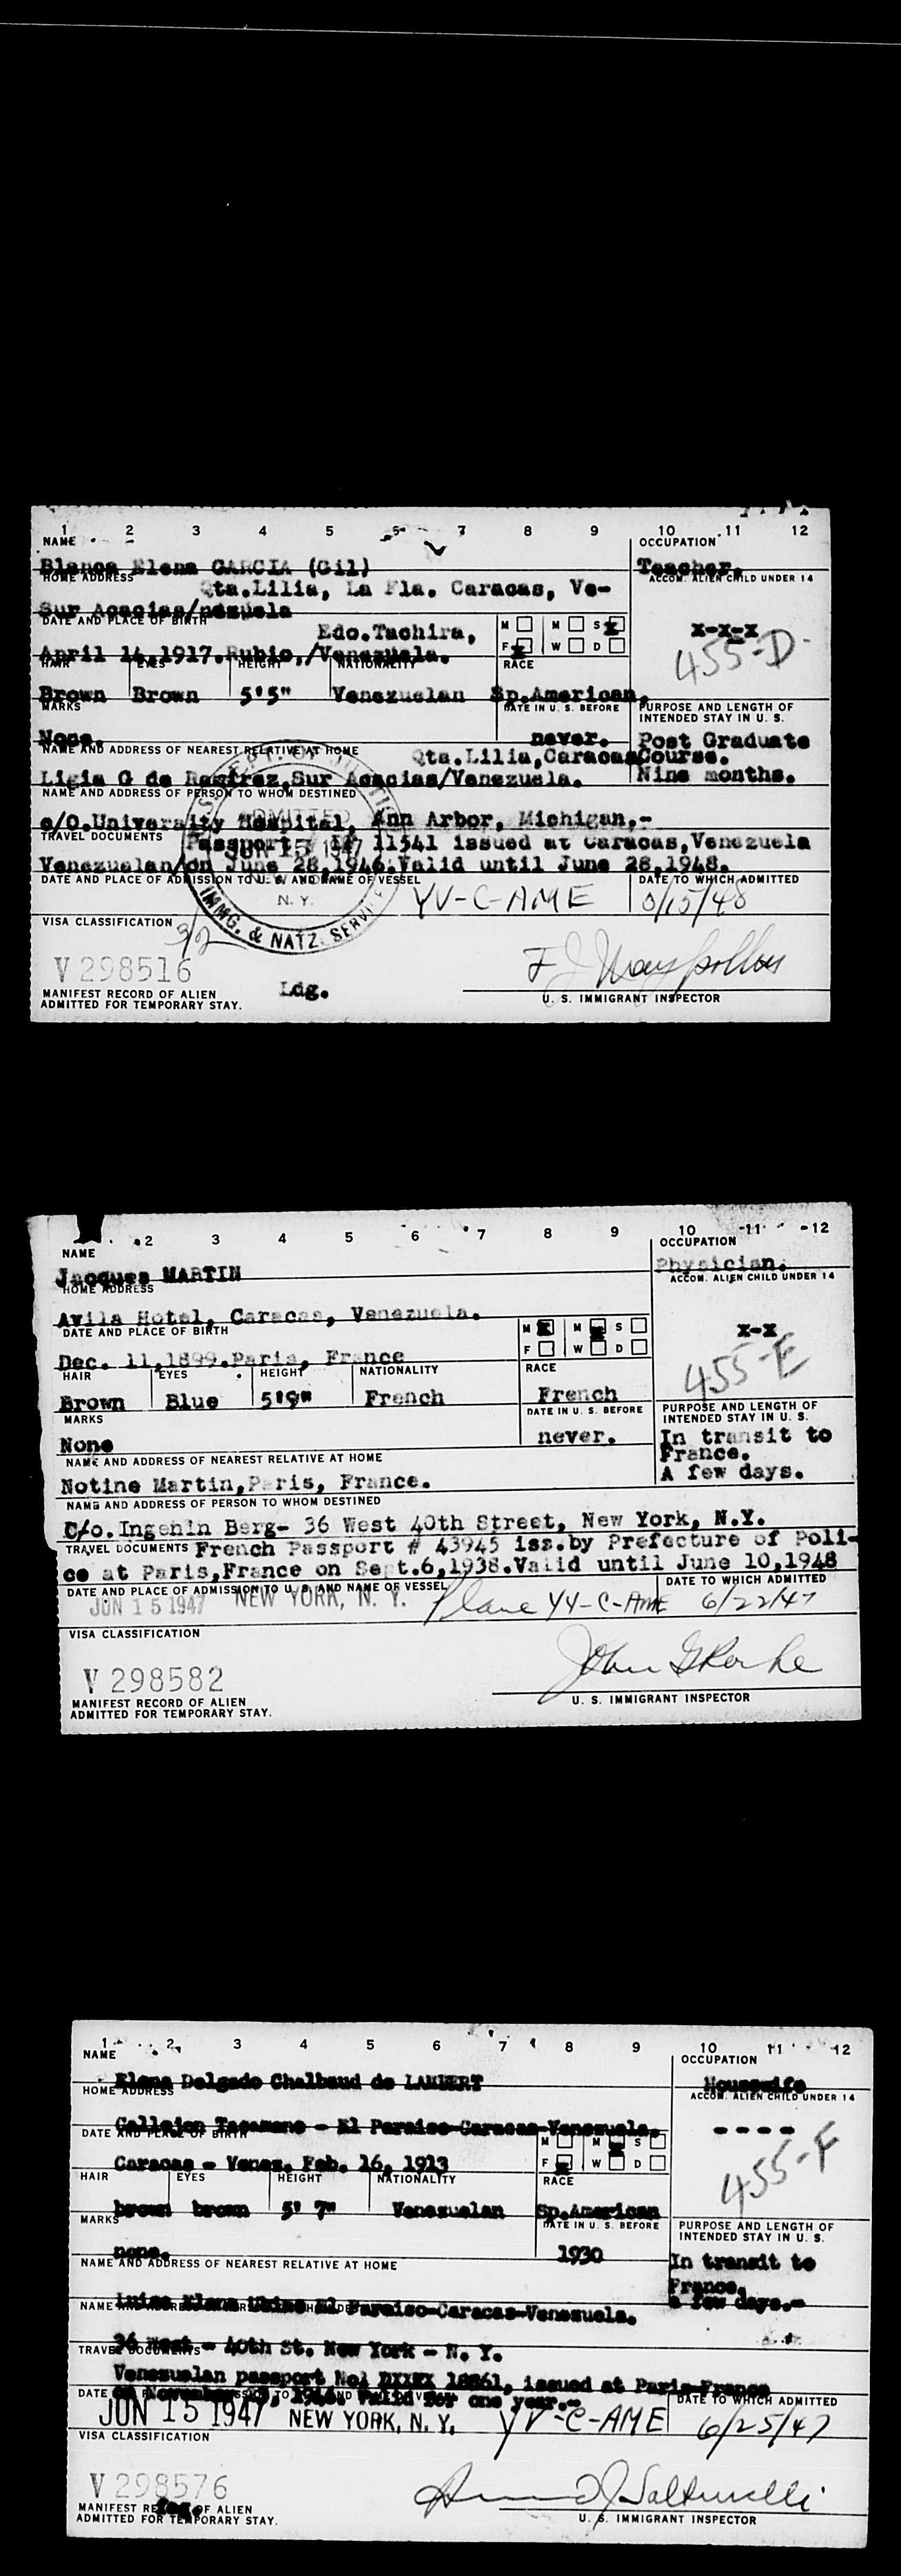 1 2 3 4 5 6 7 8 9 10 11 12
NAME OCCUPATION
Blanca Elena GARCIA (Gil) Teacher.
HOME ADDRESS ACCOM. ALIEN CHILD UNDER 14
Qta.Lilia, La Fla. Caracas, Ve-
Sur Acacias/nezuela
DATE AND PLACE OF BIRTH M M S x x-x-x
Edo.Tachira, F x W D 455-D
April 14.1917.Rubio,/Venezuela.
HAIR EYES HEIGHT NATIONALITY RACE
Brown Brown 5'5" Venezuelan Sp.American.
MARKS DATE IN U. S. BEFORE PURPOSE AND LENGTH OF
INTENDED STAY IN U. S.
None. never. Post Graduate
NAME AND ADDRESS OF NEAREST RELATIVE AT HOME
Qta.Lilia,Caracas Course.
Ligia G de Ramirez,Sur Acacias/Venezuela. Nine months.
NAME AND ADDRESS OF PERSON TO WHOM DESTINED
c/O.University Hospital, Ann Arbor, Michigan,-
TRAVEL DOCUMENTS
Passport 11541 issued at Caracas,Venezuela
Venezuelan/on June 28,1946.Valid until June 28,1948.
ADMITTED
JUN 15 1947
N. Y.
IMMG. & NATZ. SERVICE
DATE AND PLACE OF ADMISSION TO U. S. AND NAME OF VESSEL DATE TO WHICH ADMITTED
YV-C-AME 3/15/48
VISA CLASSIFICATION 3/2
V 298516
Ldg.
MANIFEST RECORD OF ALIEN U. S. IMMIGRANT INSPECTOR
ADMITTED FOR TEMPORARY STAY.
2 3 4 5 6 7 8 9 10 11 12
NAME OCCUPATION
Jacques MARTIN Physician.
HOME ADDRESS ACCOM. ALIEN CHILD UNDER 14
Avila Hotel, Caracas, Venezuela.
DATE AND PLACE OF BIRTH M x M x S x-x
F W D 455-E
Dec. 11,1899.Paris, France
HAIR EYES HEIGHT NATIONALITY RACE
Brown Blue 5'9" French French
MARKS DATE IN U. S. BEFORE PURPOSE AND LENGTH OF
INTENDED STAY IN U. S.
None never. In transit to
France.
NAME AND ADDRESS OF NEAREST RELATIVE AT HOME
A few days.
Notine Martin,Paris, France.
NAME AND ADDRESS OF PERSON TO WHOM DESTINED
C/o. Ingenin Berg- 36 West 40th Street, New York, N.Y.
TRAVEL DOCUMENTS French Passport # 43945 iss.by Prefecture of Poli-
ce at Paris,France on Sept.6,1938.Valid until June 10,1948
DATE AND PLACE OF ADMISSION TO U. S. AND NAME OF VESSEL DATE TO WHICH ADMITTED
JUN 15 1947 NEW YORK, N. Y. Plane YV-C-AME 6/22/47
VISA CLASSIFICATION
V 298582
MANIFEST RECORD OF ALIEN U. S. IMMIGRANT INSPECTOR
ADMITTED FOR TEMPORARY STAY.
1 2 3 4 5 6 7 8 9 10 11 12
NAME OCCUPATION
Elena Delgado Chalbaud de LAMBERT Housewife
HOME ADDRESS ACCOM. ALIEN CHILD UNDER 14
Callejon - El Paraiso-Caracas-Venezuela.
DATE AND PLACE OF BIRTH M M x S - - - -
Caracas - Venez. Feb. 16, 1913 F x W D 455-F
HAIR EYES HEIGHT NATIONALITY RACE
brown brown 5' 7" Venezuelan Sp.American
MARKS DATE IN U. S. BEFORE PURPOSE AND LENGTH OF
INTENDED STAY IN U. S.
none. 1930 In transit to
NAME AND ADDRESS OF NEAREST RELATIVE AT HOME
France.
a few days.-
Luisa Elena El Paraiso-Caracas-Venezuela.
36 West - 40th St. New York - N. Y.
TRAVEL DOCUMENTS
Venezuelan passport 18861, issued at Paris-France
on November 1946. Valid for one year.-
DATE TO WHICH ADMITTED
JUN 15 1947 NEW YORK, N. Y. YV-C-AME 6/25/47
VISA CLASSIFICATION
V 298576
MANIFEST RECORD OF ALIEN
ADMITTED FOR TEMPORARY STAY. U. S. IMMIGRANT INSPECTOR